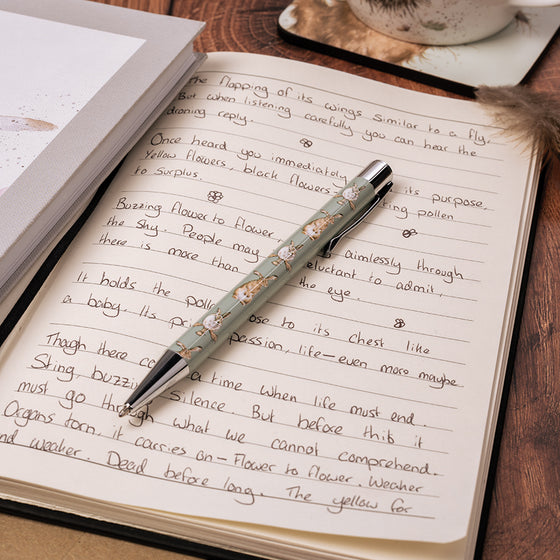 the flapping of its wings similar to a fly,
But when listening carefully you can hear the
droning reply.
Once heard you immediately its purpose,
Yellow flowers, black flowers king pollen
to surplus.
Buzzing flower to flower, to aimlessly through
the sky. People may reluctant to admit,
there is more than the eye.
It holds the poll ose to its chest like
a baby. Its passion, life-even more maybe
Though there co a time when life must end.
Sting, buzzi silence. But before this it
must go through what we cannot comprehend.
Organs torn, it carries on - flower to flower. Weaker
nd weaker. Dead before long. The yellow for